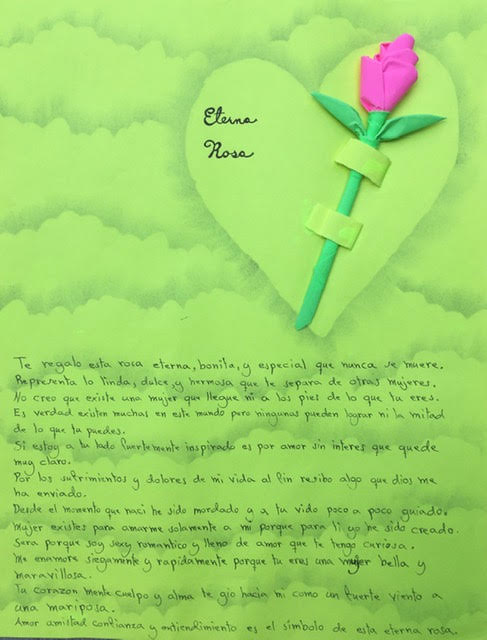 Eterna
Rosa
Te regalo esta rosa eterna, bonita, y especial que nunca se muere.
Representa lo linda, dulce, y hermosa que te separa de otras mujeres.
No creo que existe una mujer que llegue ni a los pies de lo que tu eres.
Es verdad existen muchas en este mundo pero ningunas pueden lograr ni la mitad
de lo que tu puedes.
Si estoy a tu lado fuertemente inspirado es por amor sin interes que quede
muy claro.
Por los sufrimientos y dolores de mi vida al fin resibo algo que dios me
ha enviado.
Desde el momento que naci he sido mordado y a tu vida poco a poco guiado.
Mujer existes para amarme solamente a mi porque para ti yo he sido creado.
Sera porque soy sexy romantico y lleno de amor que te tengo curiosa.
Me enamore siegamente y rapidamente porque tu eres una mujer bella y
maravillosa.
Tu corazon mente cuelpo y alma te gio hacia mi como un fuerte viento a
una mariposa.
Amor amistad confianza y entiendimiento es el simbolo de esta eterna rosa.